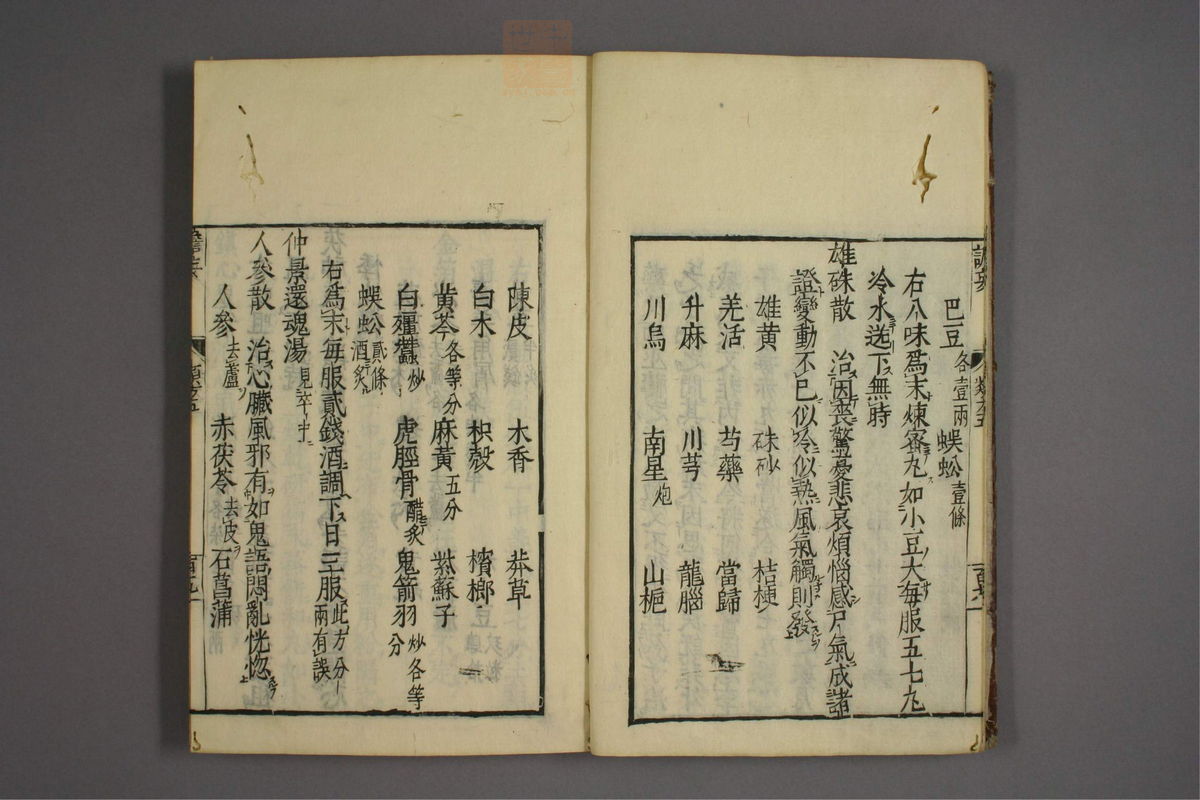 巴豆各壹兩 蜈蚣壹條
右八味爲末煉蜜丸如小豆大每服五七丸
冷水送下無時
雄硃散 治因喪驚憂悲哀煩惱感尸氣成諸
證變動不已似冷似熱風氣觸則發
雄黃 硃砂 桔梗
羌活 芍藥 當歸
升麻 川芎 龍腦
川烏 南星炮 山梔
陳皮 木香 莽草
白木 枳殼 檳榔
黃芩各等分 麻黃五分 紫蘇子
白殭蠶炒 虎脛骨醋炙 鬼箭羽炒各等分
蜈蚣貳條酒炙
右爲末每服貳錢酒調下日三服此方分兩有誤
仲景還魂湯見卒中
人參散 治心臟風邪有如鬼語悶亂恍惚
人參去蘆 赤茯苓去皮 石菖蒲